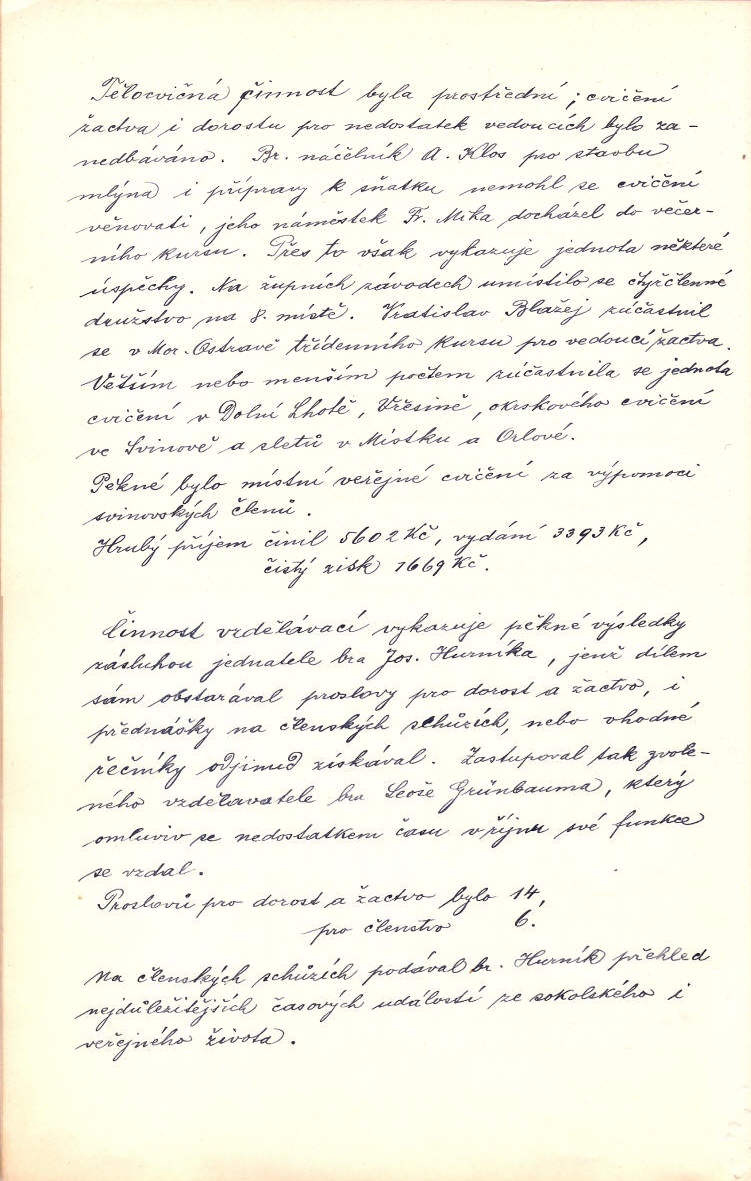 Tělocvičná činnost byla prostřední; cvičení
žactva i dorostu pro nedostatek vedoucích bylo za-
nedbáváno. Br. náčelník A. Klos pro stavbu
mlýna i přípravy k sňatku nemohl se cvičení
věnovati, jeho náměstek Fr. Mika docházel do večer-
ního kursu. Přes to však vykazuje jednota některé
úspěchy. Na župních závodech umístilo se čtyřčlenné
družstvo na 8. místě. Vratislav Blažej zúčastnil
se v Mor. Ostravě třídenního kursu pro vedoucí žactva.
Větším nebo menším počtem zúčastnila se jednota
cvičení v Dolní Lhotě, Vřesině, okrskového cvičení
ve Svinově a sletů v Místku a Orlové.
Pěkné bylo místní veřejné cvičení za výpomoci
svinovských členů.
Hrubý příjem činil 5602 Kč, vydání 3393 Kč,
čistý zisk 1669 Kč.
Činnost vzdělávací vykazuje pěkné výsledky
zásluhou jednatele bra Jos. Hurníka, jenž dílem
sám obstarával proslovy pro dorost a žactvo, i
přednášky na členských schůzích, nebo vhodné
řečníky odjinud získával. Zastupoval tak zvole-
ného vzdělavatele bra Leoše Grünbauma, který
omluviv se nedostatkem času v říjnu své funkce
se vzdal.
Proslovů pro dorost a žactvo bylo 14,
pro členstvo 6.
Na členských schůzích podával br. Hurník přehled
nejdůležitějších časových událostí ze sokolského i
veřejného života.